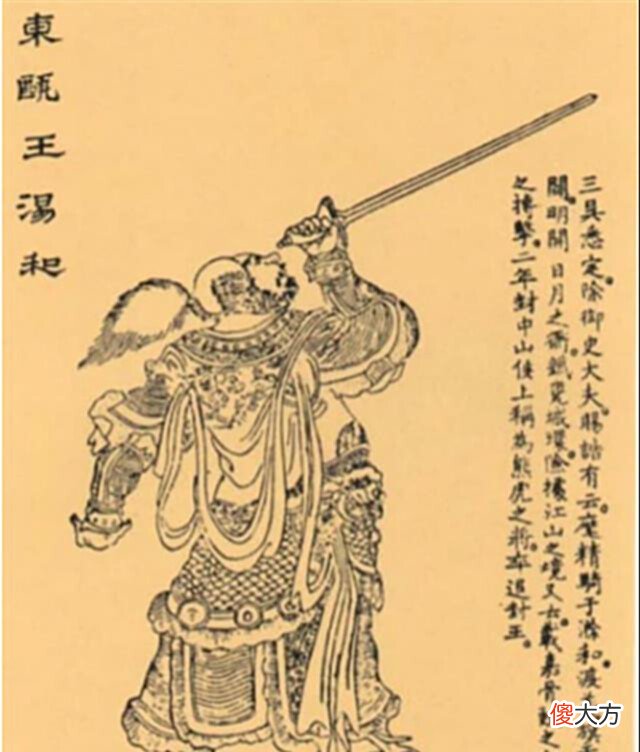 東甌王湯和
三具悉定。除御史大夫。賜誥有云。麾精騎于滁和。渡
關。明開日月之衢。鐵甕城墉險據江山之境。又云。載嘉骨鯁之
之搏擊。二年封中山侯上稱為熊虎之將。卒追封王。
傻大方